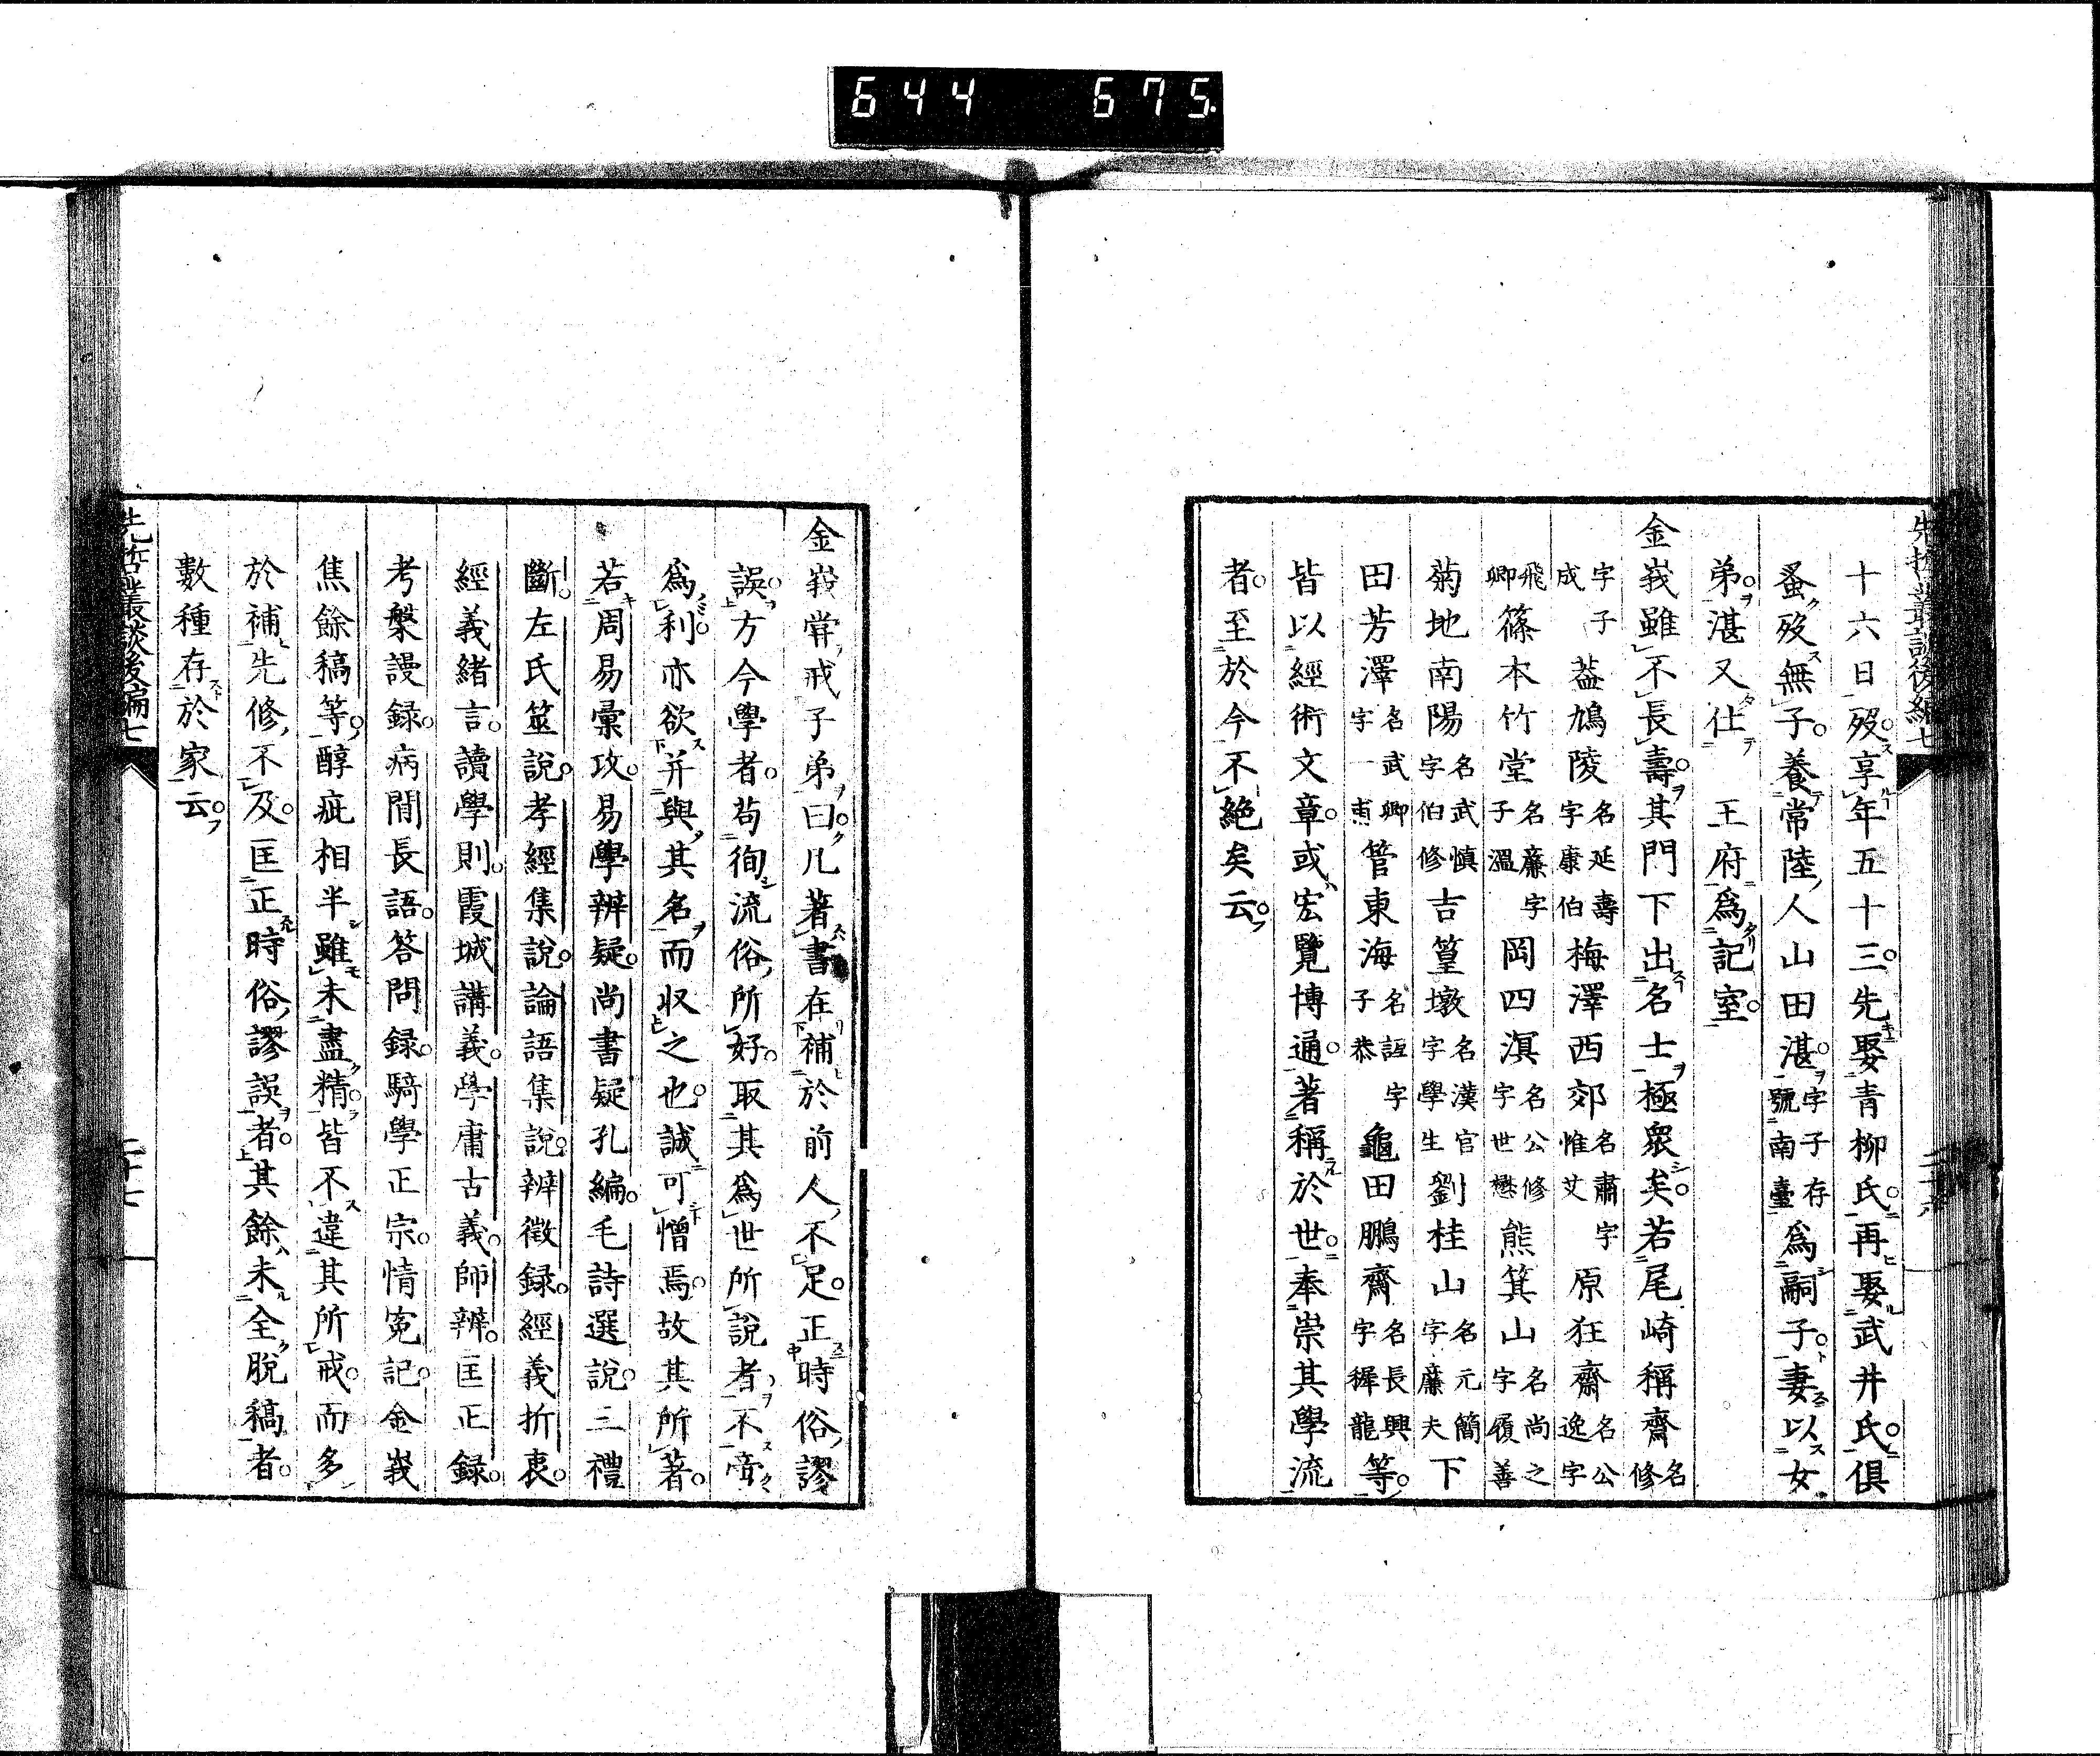 644 675
先哲叢談後編七
十六日歿享年五十三先娶青柳氏再娶武井氏俱
蚤歿無子養常陸人山田湛字子存號南臺爲嗣子妻以女
弟湛又仕 王府爲記室
金峩雖不長壽其門下出名士極衆矣若尾崎稱齋名修
字子成葢鳩陵名延壽字康伯梅澤西郊名肅字惟艾原狂齋名公逸字
飛卿篠本竹堂名廉字子溫岡四溟名公修字世懋熊箕山名尚之字履善
菊地南陽名武愼字伯修吉篁墩名漢官字學生劉桂山名元簡字廉夫下
田芳澤名武卿字一甫管東海名誑字子恭龜田鵬齋名長興字穉龍等
皆以經術文章或宏覽博通著稱於世奉崇其學流
者至於今不絕矣云
金峩嘗戒子弟曰凡著書在補於前人不足正時俗謬
誤方今學者苟徇流俗所好取其爲世所說者不啻
爲利亦欲并與其名而収之也誠可憎焉故其所著
若周易彙攷易學辨疑尚書疑孔編毛詩選說三禮
斷左氏筮說孝經集說論語集說辨徵録經義折衷
經義緒言讀學則霞城講義學庸古義師辨匡正録
考槃謾録病間長語答問録騎學正宗情寃記金峩
焦餘稿等醇疵相半雖未盡精皆不違其所戒而多
於補先修不及匡正時俗謬誤者其餘未全脫稿者
數種存於家云
先哲叢談後編七
二十七